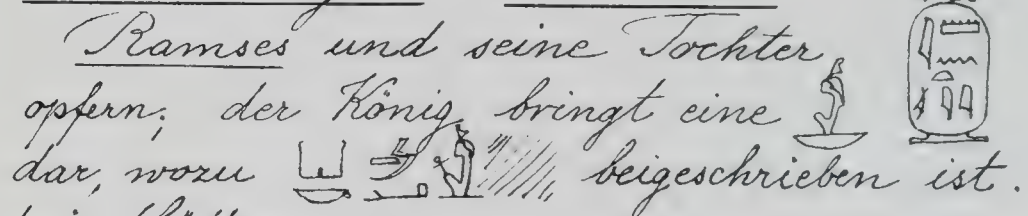 Ramses und seine Tochter
opfern; der König bringt eine
dar, wozu beigeschrieben ist.